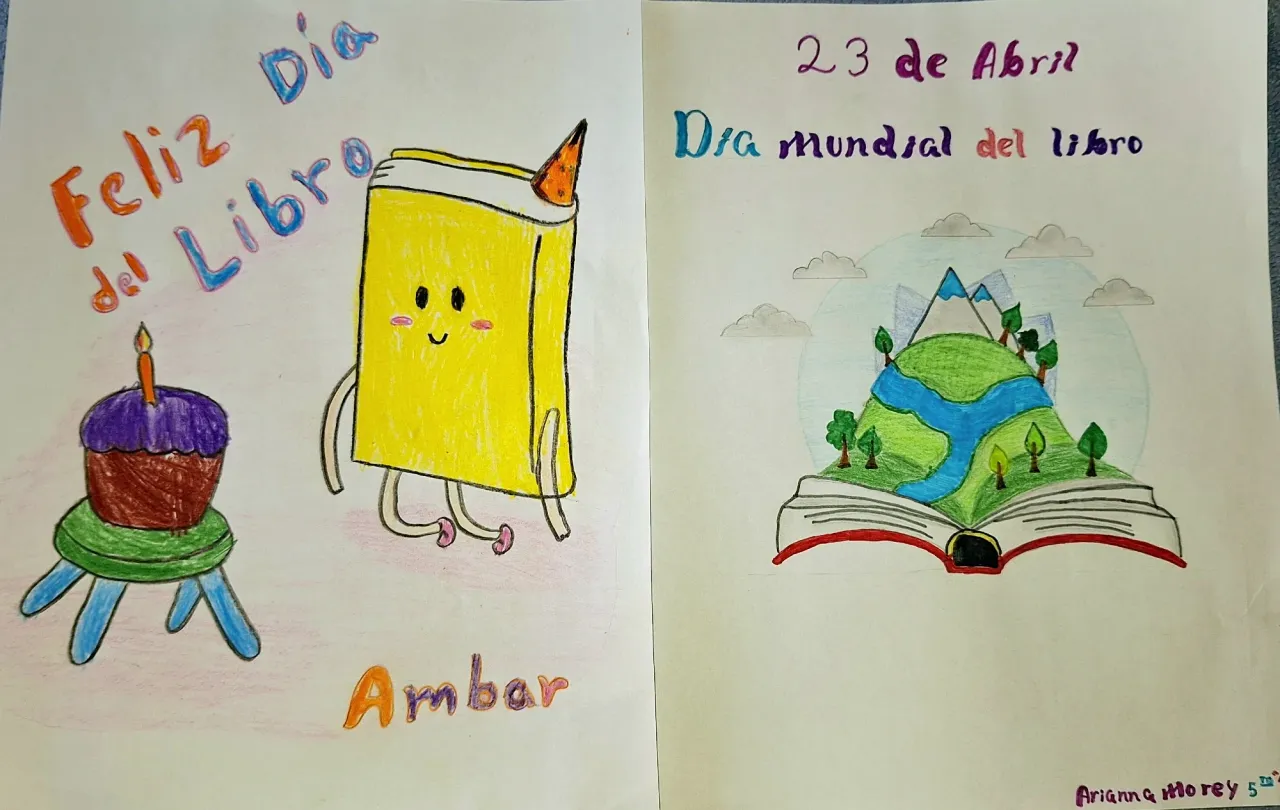 Feliz Día
del Libro
Ambar
23 de Abril
Día mundial del libro
Arianna Morey 5to